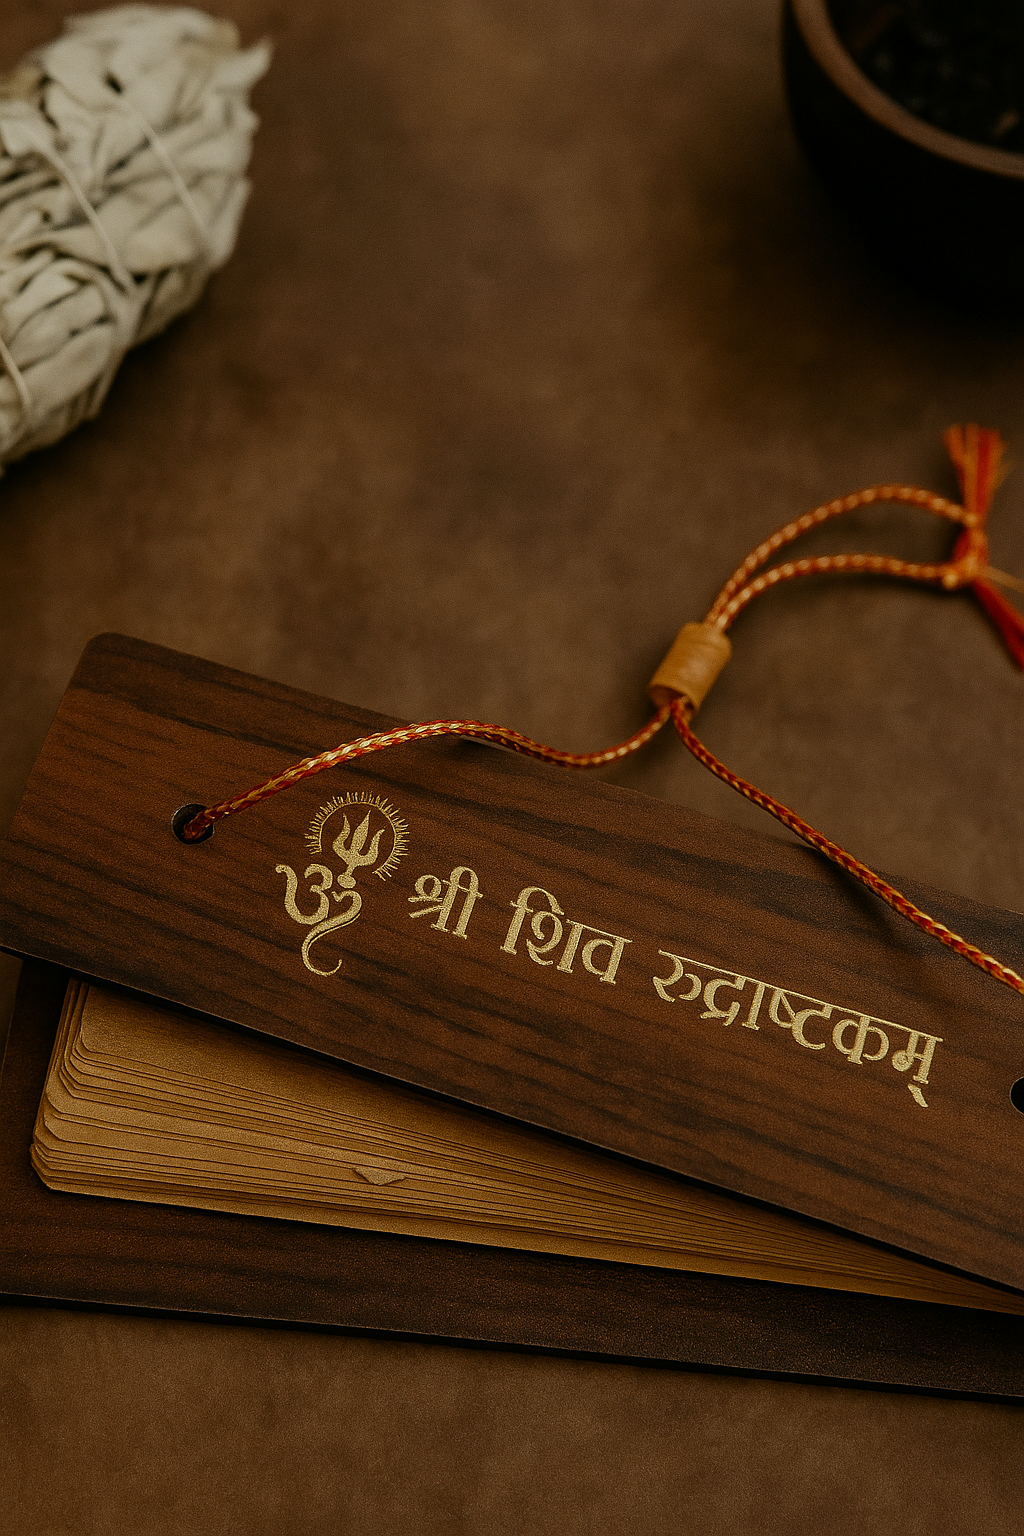 ॐ
श्री शिव रुद्राष्टकम्